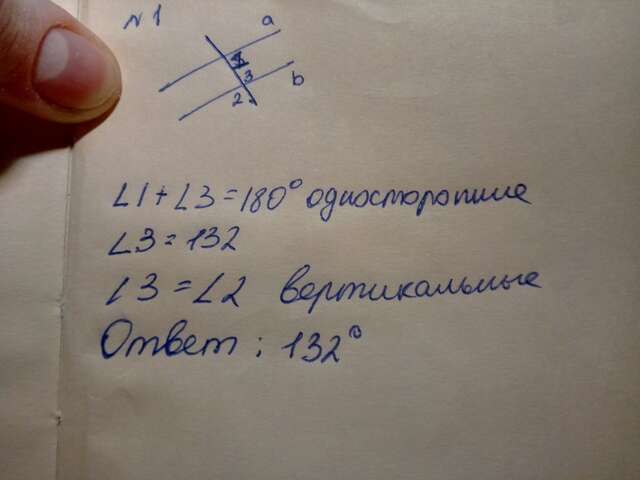 № 1
a
3
b
2
∠1 + ∠3 = 180° односторонние
∠3 = 132
∠3 = ∠2 вертикальные
Ответ: 132°